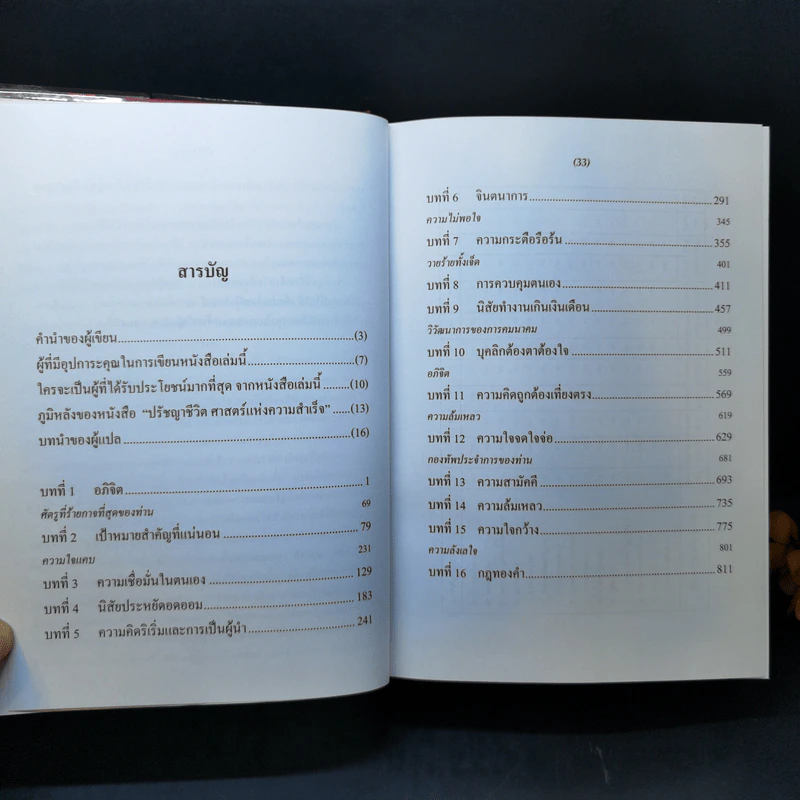 สารบัญ
คำนำของผู้เขียน.......................(3)
ผู้ที่มีอุปการะคุณในการเขียนหนังสือเล่มนี้.......................(7)
ใครจะเป็นผู้ที่ได้รับประโยชน์มากที่สุด จากหนังสือเล่มนี้.......(10)
ภูมิหลังของหนังสือ “ปรัชญาชีวิต ศาสตร์แห่งความสำเร็จ”.....(13)
บทนำของผู้แปล.......................(16)
บทที่ 1 อภิจิต.......................1
ศัตรูที่ร้ายกาจที่สุดของท่าน 69
บทที่ 2 เป้าหมายสำคัญที่แน่นอน.......................79
ความใจแคบ 231
บทที่ 3 ความเชื่อมั่นในตนเอง.......................129
บทที่ 4 นิสัยประหยัดอดออม.......................183
บทที่ 5 ความคิดริเริ่มและการเป็นผู้นำ.......................241
(33)
บทที่ 6 จินตนาการ.......................291
ความไม่พอใจ 345
บทที่ 7 ความกระตือรือร้น.......................355
วายร้ายทั้งเจ็ด 401
บทที่ 8 การควบคุมตนเอง.......................411
บทที่ 9 นิสัยทำงานเกินเงินเดือน.......................457
วิวัฒนาการของการคมนาคม 499
บทที่ 10 บุคลิกต้องตาต้องใจ.......................511
อภิจิต 559
บทที่ 11 ความคิดถูกต้องเที่ยงตรง.......................569
ความล้มเหลว 619
บทที่ 12 ความใจจดใจจ่อ.......................629
กองทัพประจำการของท่าน 681
บทที่ 13 ความสามัคคี.......................693
บทที่ 14 ความล้มเหลว.......................735
บทที่ 15 ความใจกว้าง.......................775
ความลังเลใจ 801
บทที่ 16 กฎทองคำ.......................811